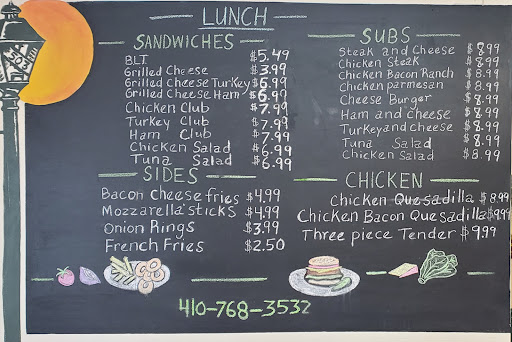 LUNCH
SANDWICHES
B.L.T. $5.49
Grilled Cheese $3.99
Grilled Cheese Turkey $6.99
Grilled Cheese Ham $6.99
Chicken Club $7.99
Turkey Club $7.99
Ham Club $7.99
Chicken Salad $6.99
Tuna Salad $6.99
SIDES
Bacon Cheese fries $4.99
Mozzarella sticks $4.99
Onion Rings $3.99
French Fries $2.50
SUBS
Steak and Cheese $8.99
Chicken Steak $8.99
Chicken Bacon Ranch $8.99
Chicken parmesan $8.99
Cheese Burger $8.99
Ham and cheese $8.99
Turkey and cheese $8.99
Tuna Salad $8.99
Chicken Salad $8.99
CHICKEN
chicken Quesadilla $8.99
Chicken Bacon Quesadilla $9.99
Three piece Tender $9.99
410-768-3532